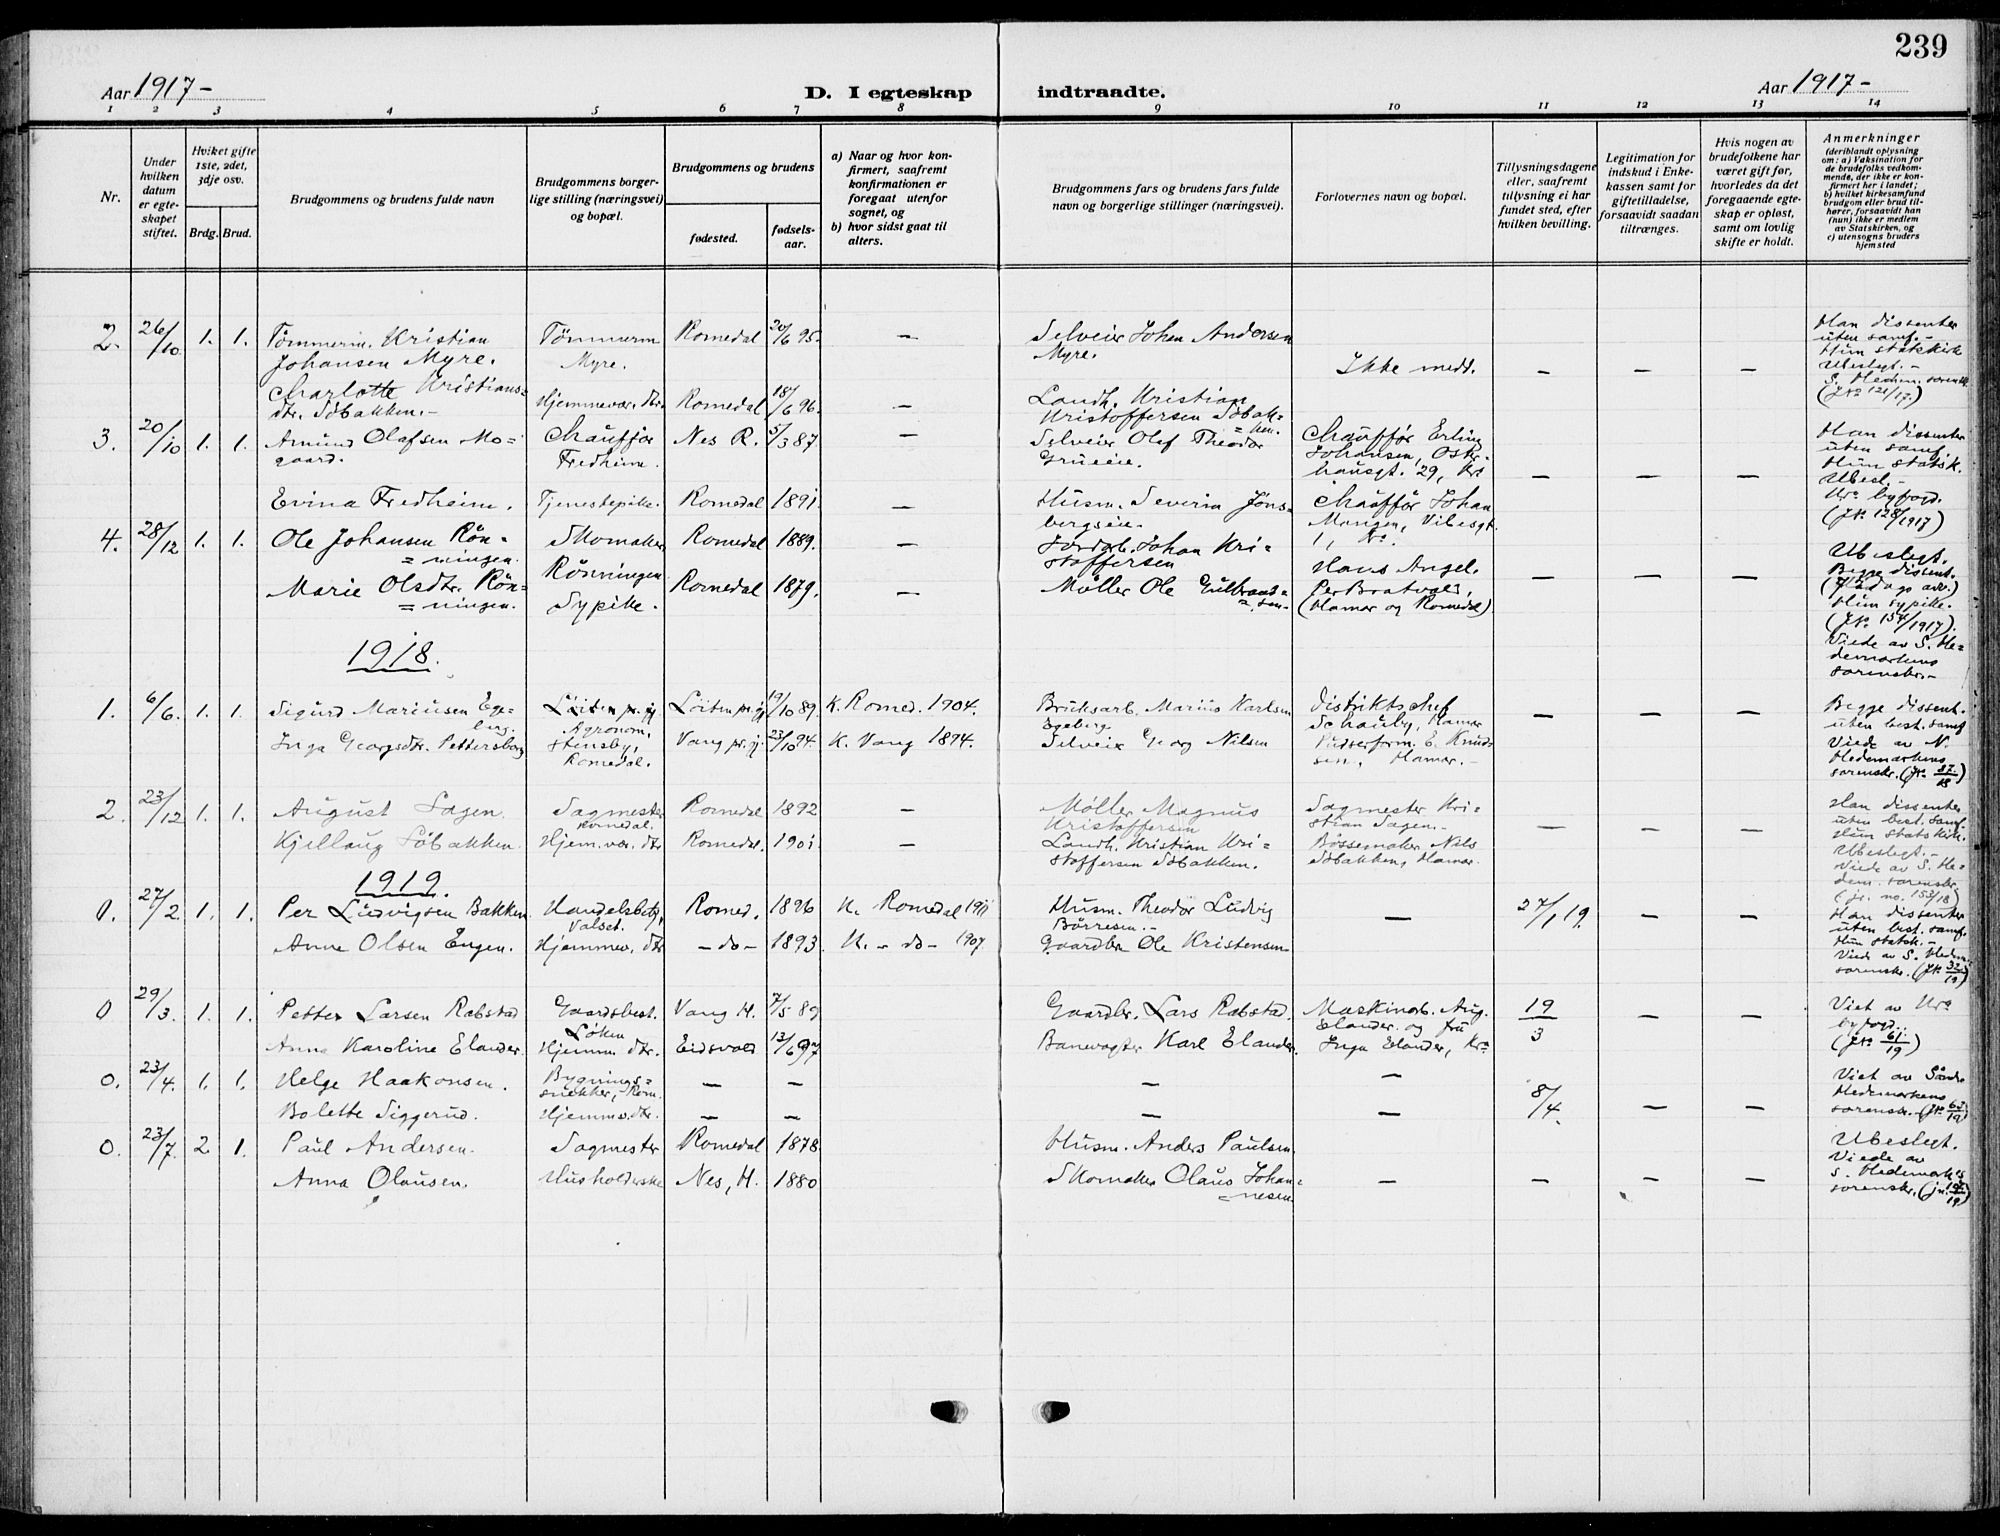 239
Aar 1917- D. I egteskap indtraadte. Aar 1917-
1 2 3 4 5 6 7 8 9 10 11 12 13 14
Nr.
Under hvilken datum er egteskapet stiftet.
Hviket gifte 1ste, 2det, 3dje osv.
Brdg. Brud.
Brudgommens og brudens fulde navn
Brudgommens borgerlige stilling (næringsvei) og bopæl.
Brudgommens og brudens
fødested. fødselsaar.
a) Naar og hvor konfirmert, saafremt konfirmationen er foregaat utenfor sognet, og
b) hvor sidst gaat til alters.
Brudgommens fars og brudens fars fulde navn og borgerlige stillinger (næringsvei).
Forlovernes navn og bopæl.
Tillysningsdagene eller, saafremt tillysning ei har fundet sted, efter hvilken bevilling.
Legitimation for indskud i Enkekassen samt for giftetilladelse, forsaavidt saadan tiltrænges.
Hvis nogen av brudefolkene har været gift før, hvorledes da det foregaaende egteskap er opløst, samt om lovlig skifte er holdt.
Anmerkninger
(deriblandt oplysning om: a) Vaksination for de brudefolks vedkommende, der ikke er konfirmert her i landet;
b) hvilket kirkesamfund brudgom eller brud tilhører, forsaavidt han (nun) ikke er medlem av Statskirken, og
c) utensogns bruders hjemsted
2. 26/10 1. 1. Tömmerm. Kristian Johansen Myre. Tömmerm Myre. Romedal 20/6 95. — Selveier Johan Andersen Myre. Ikke medt. — — — Han dissenter uten samf. -
Hun statskirk
Ubeslegt. -
S. Hedm. sorensk.
(Jn° 121/17.)
Charlotte Kristiansdtr. Söbakken. - Hjemmevær. dtr. Romedal 18/6 96. — Landh. Kristian Kristoffersen Söbakken.
3. 20/10 1. 1. Amund Olafsen Mogaard. Chaufför Fredheim. Nes R. 5/3 87. — Selveier Olef Theodor Grueeie. Chauffør Erling Johansen, Osterhausgt. 29, Kr.a — — — Han dissenter uten samf.
Hun statsk.
Ubesl. -
Kr.a byfogd.
(Jn. 128/1917)
Evina Fredheim. Tjenestepike. Romedal 1891. — Husm. Severin Jönsbergseie. Chauffør Johan Mangen, Vibesgt. 1, Kr.a
4. 28/12 1. 1. Ole Johansen Rönningen. Skomaker Rönningen Romedal 1889. — Jordarb. Johan Kristoffersen Hans Angel. — — — Ubeslegt.
Begge dissent.
Hun sypike.
(Jn. 154/1917).
Viede av S. Hedemarkens sorenskr. -
Marie Olsdtr. Rönningen. Sypike. Romedal 1879. — Møller Ole Gulbrandsen Per Bratvold, (Hamar og Romedal)
1918.
1. 6/6. 1. 1. Sigurd Mariusen Egeberg. Löiten pr.gj. Agronom, Stensby, Romedal. Löiten pr. gj. 19/10 89. K. Romed. 1904. Bruksarb. Marius Karlsen Egeberg. Distriktschef Schauby, Hamar — — — Begge dissent. uten best. samf
Viede av N. Hedemarkens sorenskr. (Jn. 87/18)
Inga Georgsdtr. Pettersborg Vang pr. gj. 23/10 94. K. Vang 1894. Selveier Georg Nilsen Pudserform. E. Knudsen, Hamar. -
2. 23/12 1. 1. August Sagen. Sagmester Romedal. Romedal 1892 — Møller Magnus Kristoffersen Sagmester Kristian Sagen. - — — — Han dissenter uten best. samf.
Hun statskirk.
Ubeslegt. -
Viede av S. Hedem. sorenskr.
(jr. no. 153/18)
Kjellaug Söbakken. Hjem.vær. dtr Romedal. 1901 — Landh. Kristian Kristoffersen Söbakken. Bössemaker Nils Söbakken, Hamar.
1919.
0. 27/2 1. 1. Per Ludvigsen Bakken. Handelsbetj. Valset. Romed. 1896 K. Romedal 1911 Husm. Theodor Ludvig Börresen. - — 27/1 19. — — Han dissenter uten best. samf.
Hun statsk. -
Viede av S. Hedem. sorenskr. (Jn. 32/19)
Anne Olsen Engen. Hjemmev. dtr -do- 1893. K. -do- 1907. Gaardbr. Ole Kristensen
0 29/3. 1. 1. Petter Larsen Rabstad Gaardsbest. Løken Vang H. 7/5 89 Gaardbr. Lars Rabstad. Maskinarb. Aug. Elander og fru 19/3 — — Viet av Kr.a byfogd.
(Jn. 61/19)
Anna Karoline Elander. Hjemmv. dtr. Eidsvold 13/6 97 Banevogter Karl Elander. Inga Elander, Kr.a
0. 23/4. 1. 1. Helge Haakonsen. Bygningssnekker, Rom. — — — — 8/4. — — Viet av Söndre Hedemarkens sorenskr. (Jn. 62/19)
Bolette Siggerud. Hjemmv. dtr. — — — —
0. 23/7. 2 1. Paul Andersen. Sagmester Romedal 1878. Husm. Anders Paulsen. Ubeslegt.
Viede av S. Hedemark. sorenskr.
Anna Olausen. Husholderske Nes, H. 1880 Skomaker Olaus Johannesen — — — —